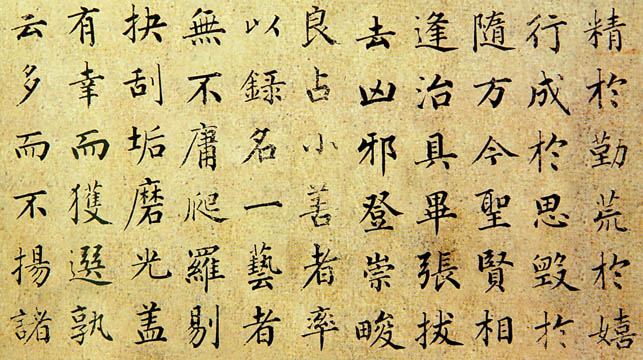 精於勤荒於嬉
行成於思毀於
隨方今聖賢相
逢治具畢張拔
去凶邪登崇畯
良占小善者率
以錄名一藝者
無不庸爬羅剔
抉刮垢磨光盖
有幸而獲選孰
云多而不揚諸